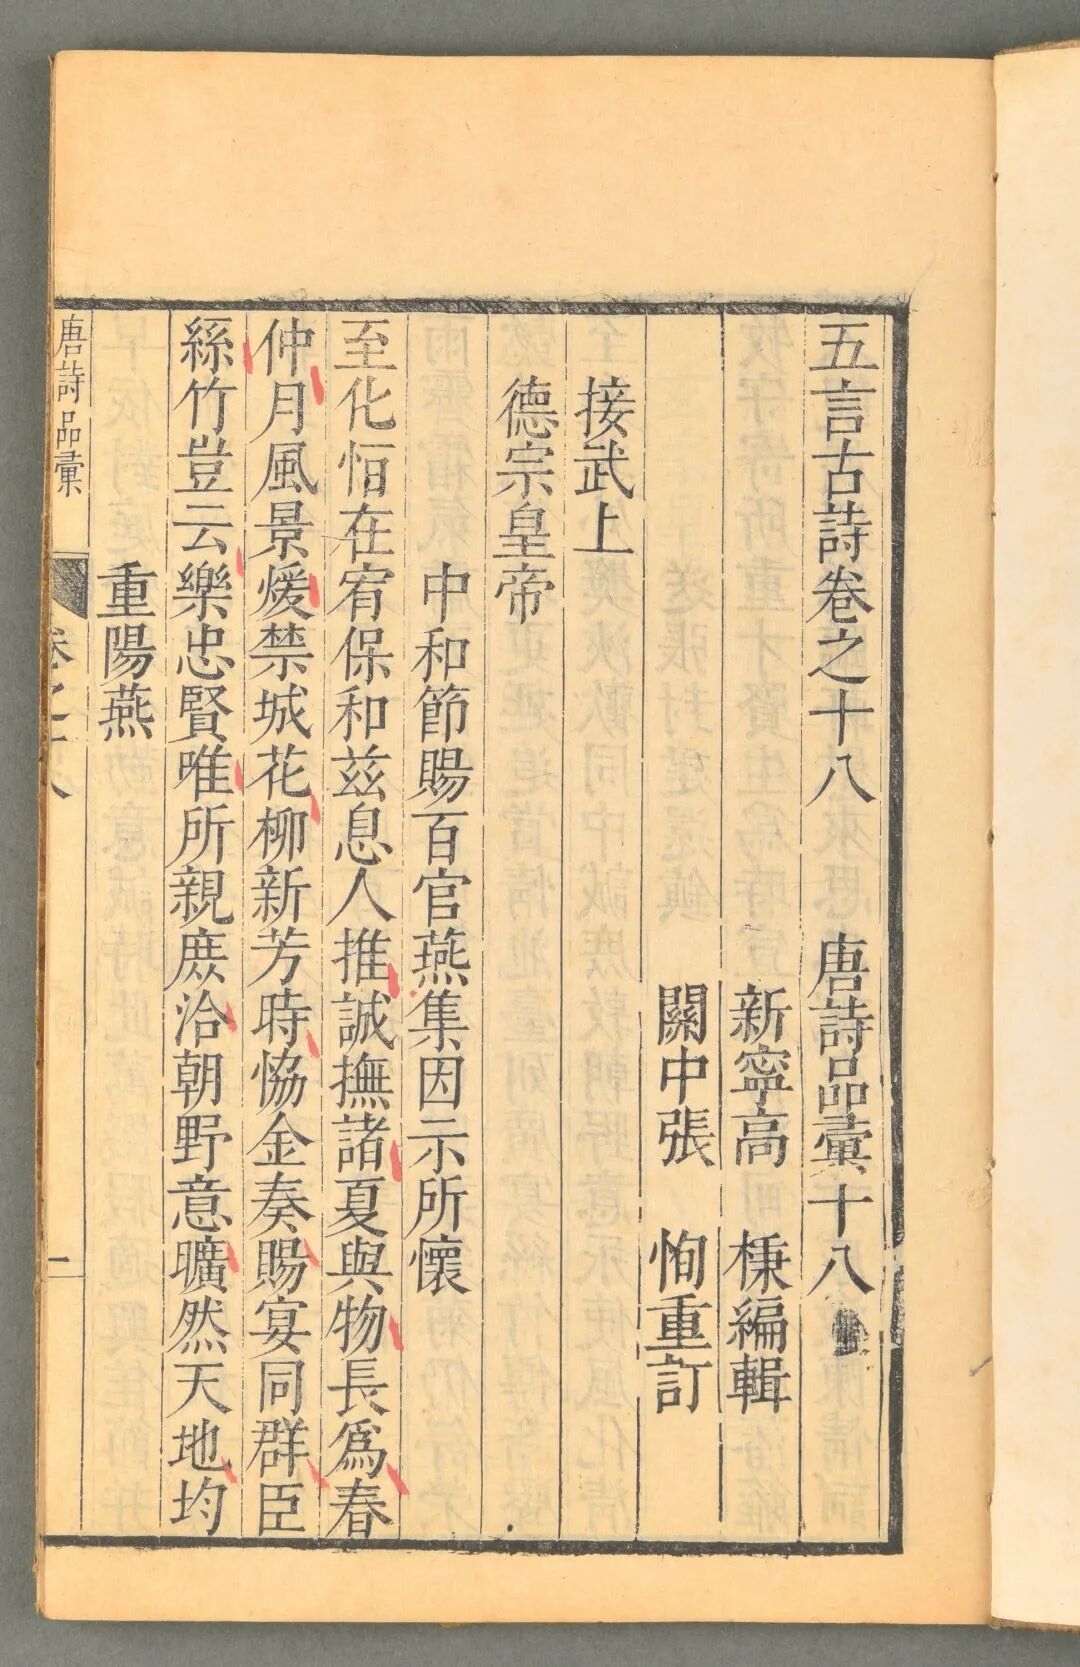 五言古詩卷之十八 唐詩品彙十八
新寧高 棅編輯
關中張 恂重訂
接武上
德宗皇帝
中和節賜百官燕集因示所懷
至化恒在宥保和兹息人推誠撫諸夏與物長爲春
仲月風景煖禁城花柳新芳時恊金奏賜宴同群臣
絲竹豈云樂忠賢唯所親庶洽朝野意曠然天地均
重陽燕
唐詩品彙
卷之十八
二